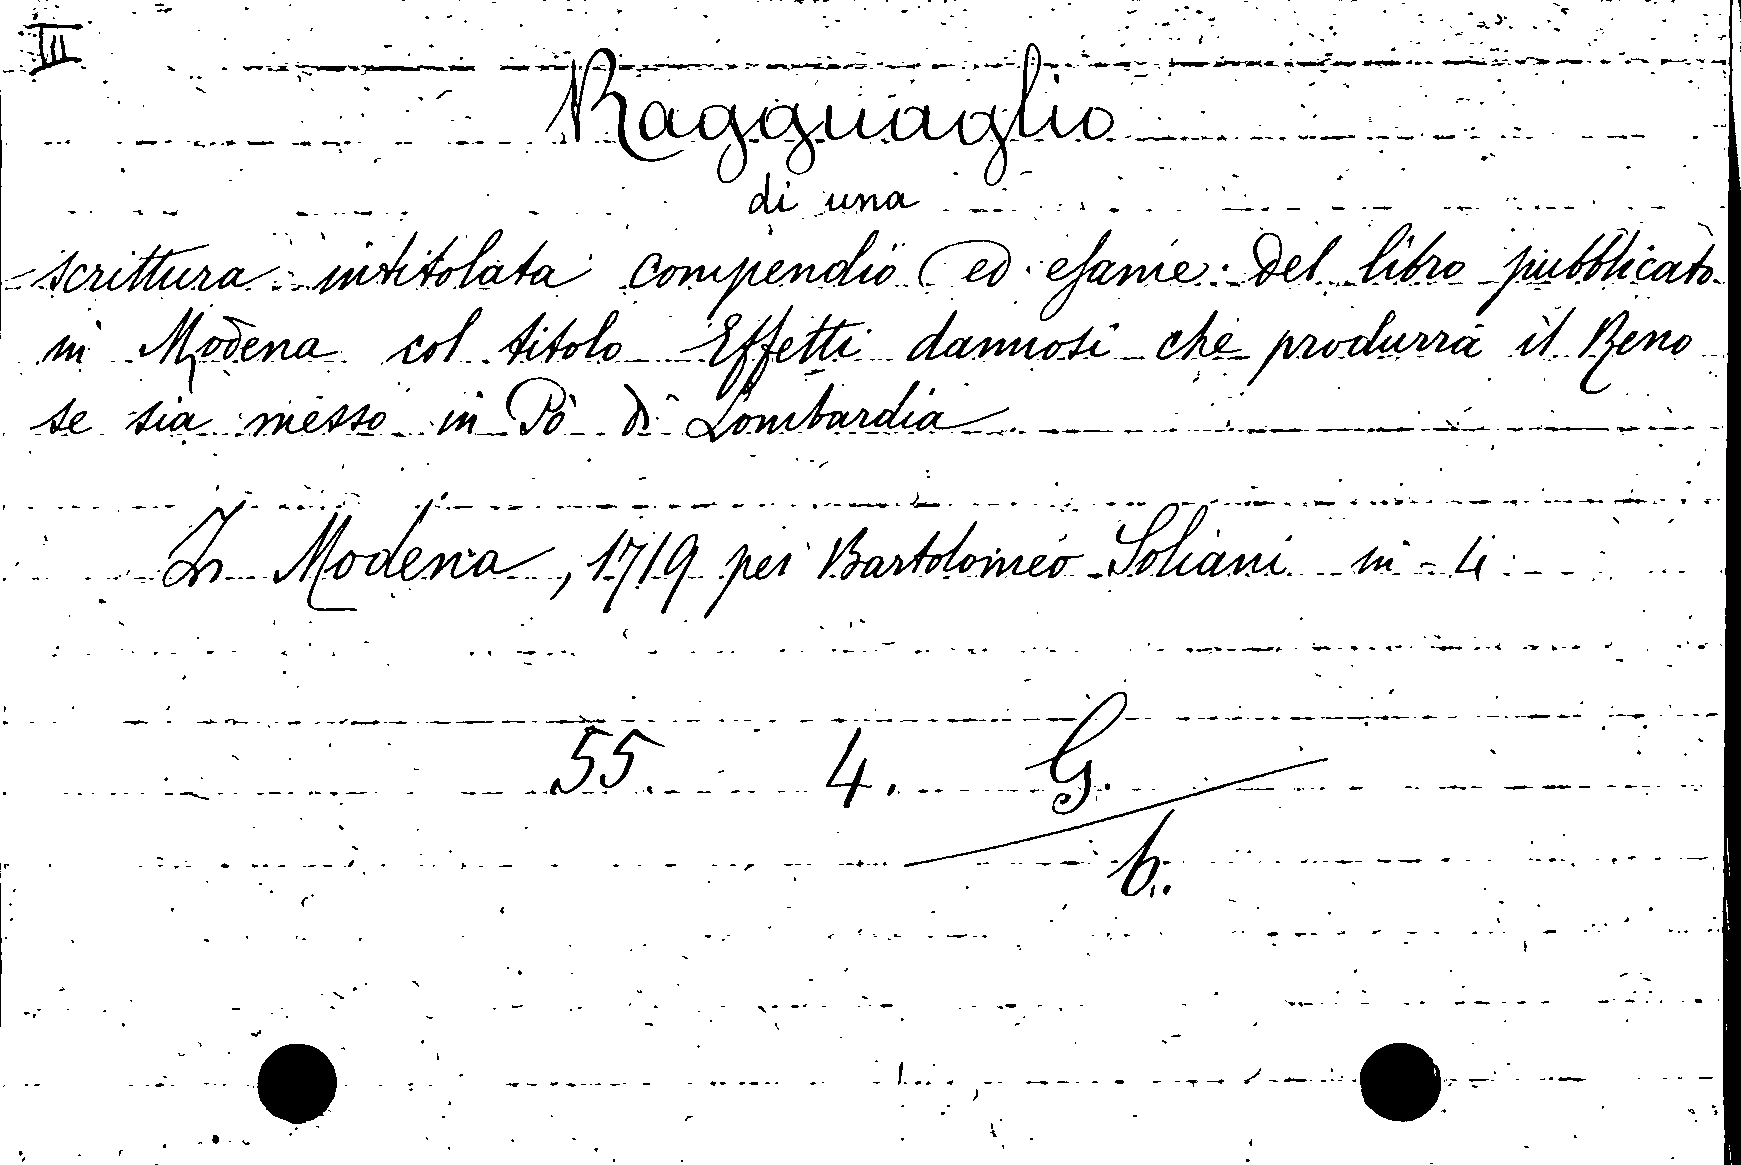 III
Ragguaglio
di una
scrittura intitolata compendio ed esame del libro pubblicato
in Modena col titolo Effetti dannosi che produrrà il Reno
se sia messo in Pò di Lombardia
In Modena, 1719 per Bartolomeo Soliani in-4
55. 4. G.
6.